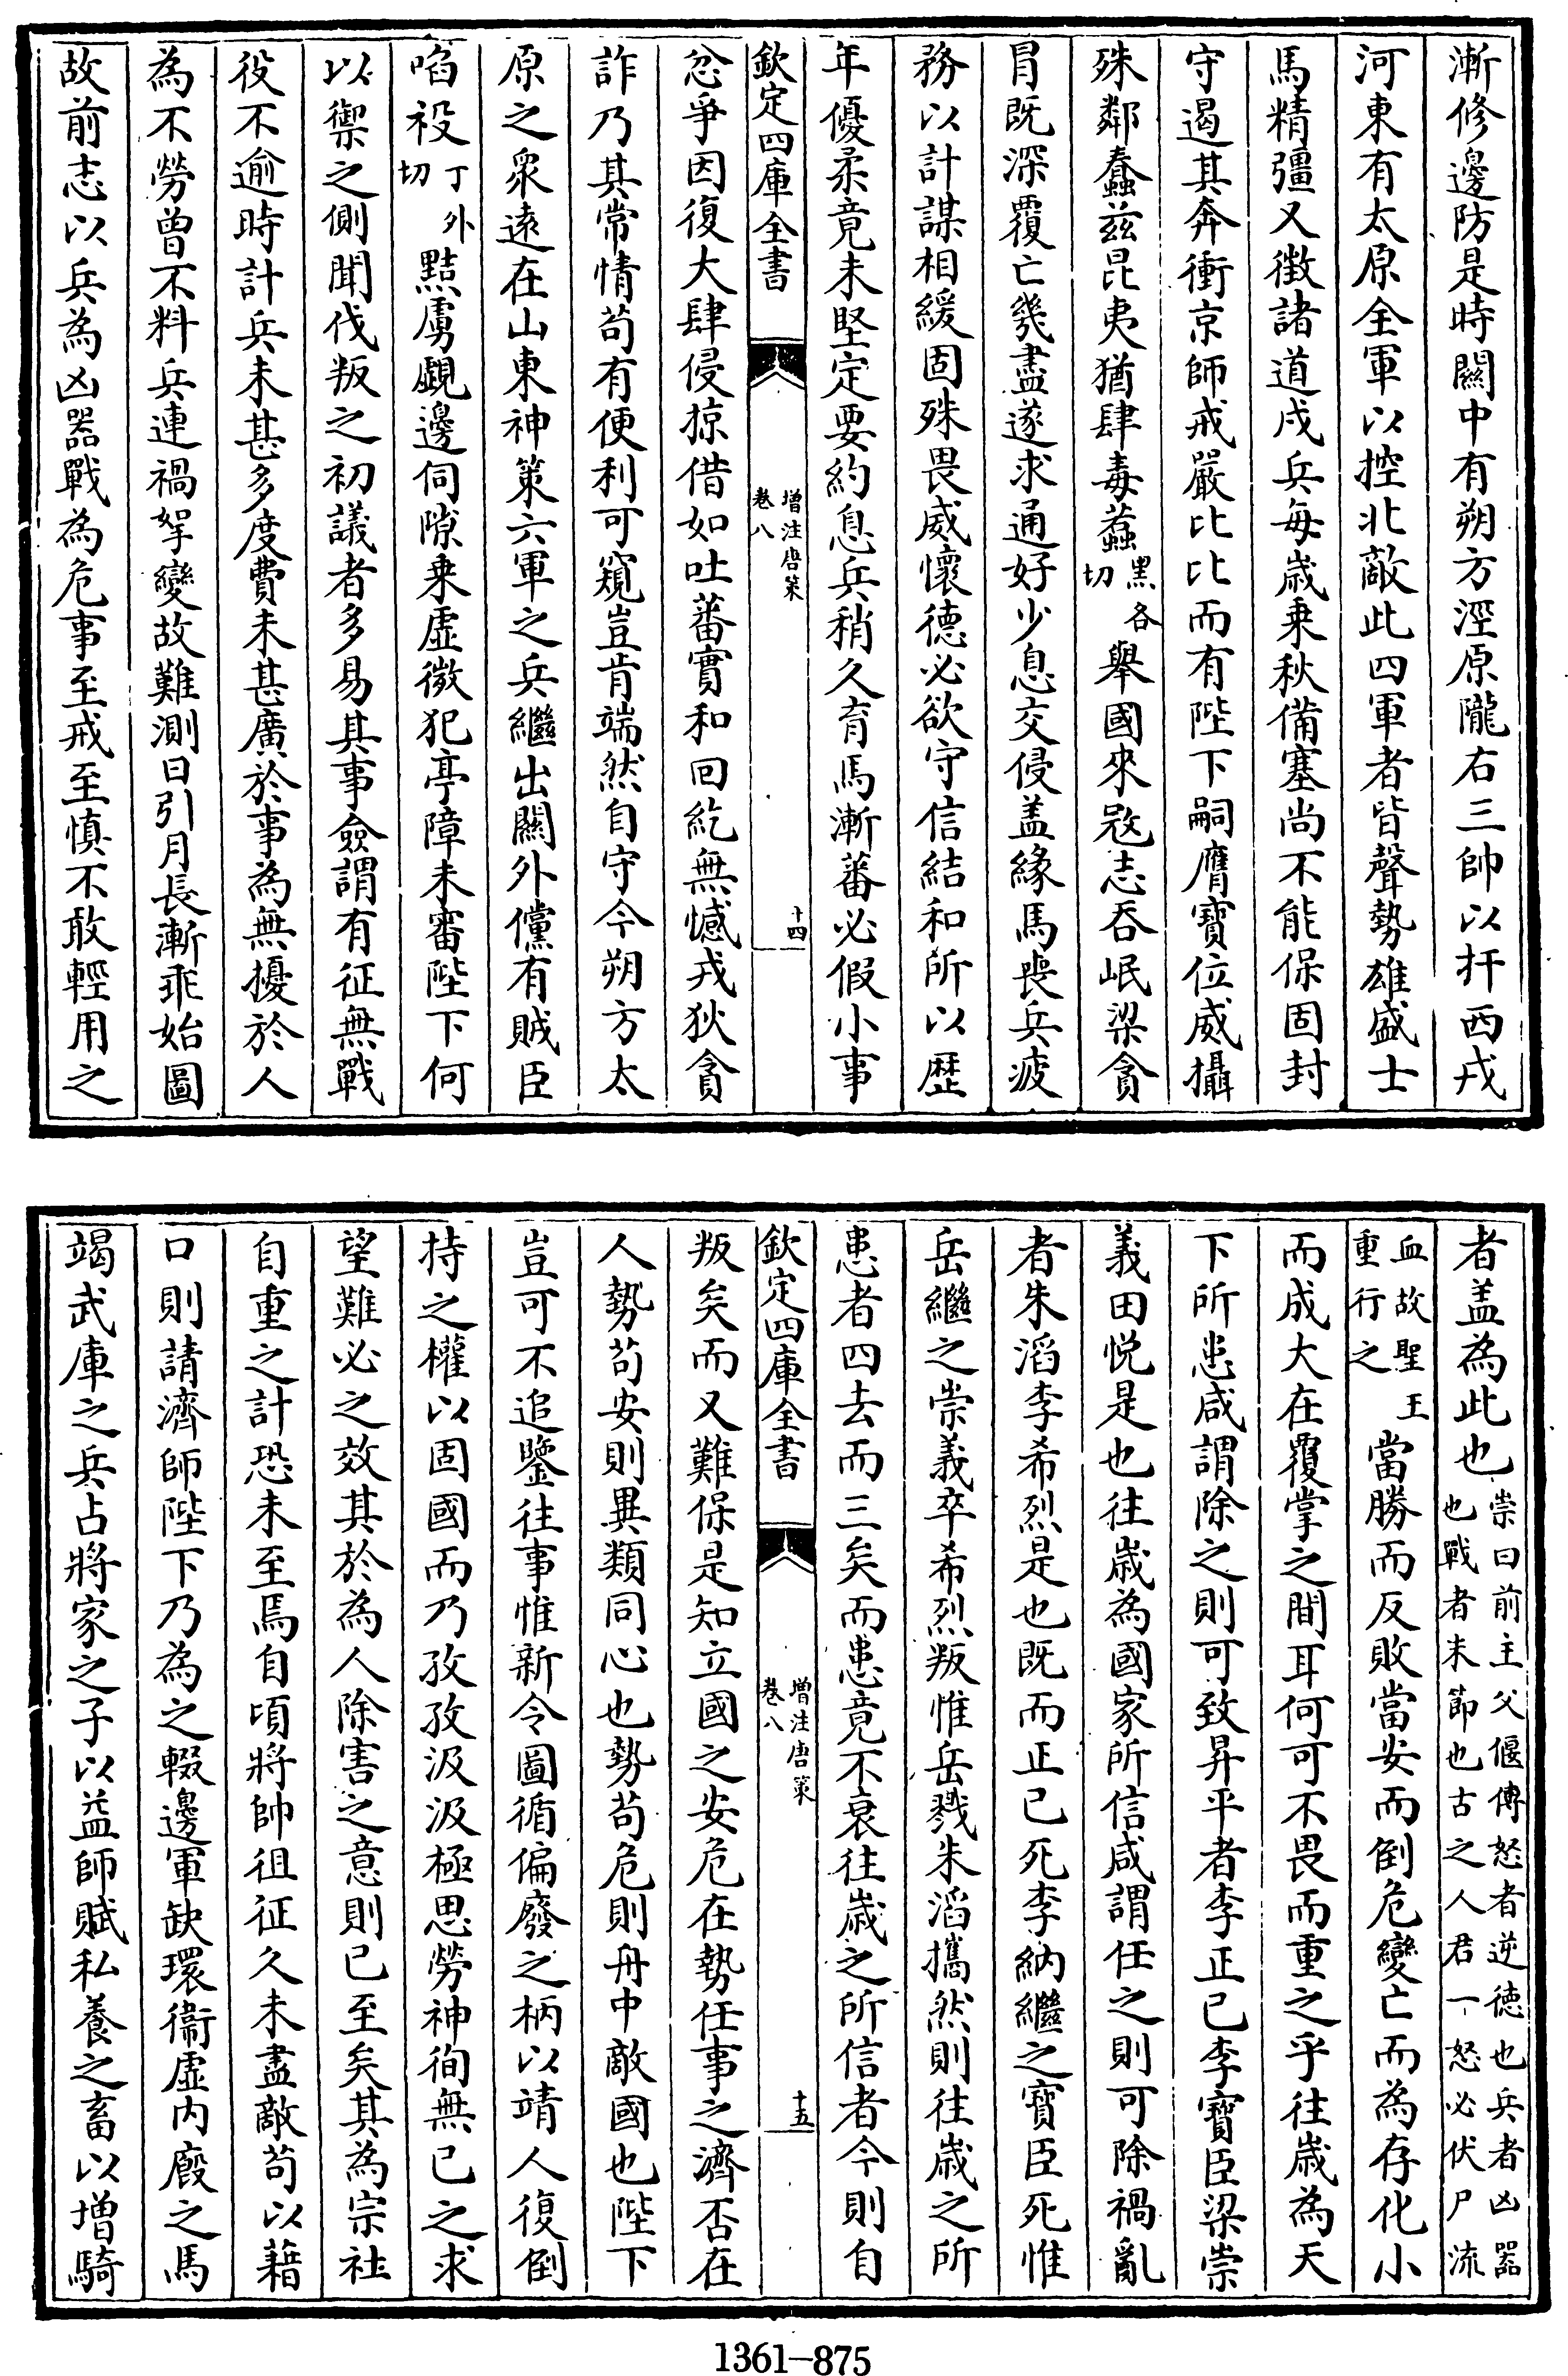 漸修邊防是時關中有朔方涇原隴右三帥以扞西戎
河東有太原全軍以控北敵此四軍者皆聲勢雄盛士
馬精彊又徴諸道戍兵每歲乗秋備塞尚不能保固封
守遏其奔衝京師戒嚴比比而有陛下嗣膺寳位威攝
殊鄰蠢兹昆夷猶肆毒蠚黑各切舉國來𡨥志吞岷梁貪
冒既深覆亡幾盡遂求通好少息交侵盖緣馬喪兵疲
務以計謀相緩固殊畏威懷德必欲守信結和所以歴
年優柔竟未堅定要約息兵稍久育馬漸蕃必假小事
欽定四庫全書
增注唐策
卷八
十四
忿爭因復大肆侵掠借如吐蕃實和回紇無憾戎狄貪
詐乃其常情茍有便利可窺豈肯端然自守今朔方太
原之衆遠在山東神策六軍之兵繼出關外儻有賊臣
啗𥘉丁外切黠虜覷邊伺隙乗虛微犯亭障未審陛下何
以禦之側聞伐叛之初議者多易其事僉謂有征無戰
役不逾時計兵未甚多度費未甚廣於事為無擾於人
為不勞曾不料兵連禍拏變故難測日引月長漸乖始圖
故前志以兵為凶器戰為危事至戒至慎不敢輕用之
者盖為此也崇曰前主父偃傳怒者逆徳也兵者凶器也戰者末節也古之人君一怒必伏尸流
血故聖王重行之當勝而反敗當安而倒危變亡而為存化小
而成大在覆掌之間耳何可不畏而重之乎往歲為天
下所患咸謂除之則可致昇平者李正已李寳臣梁崇
義田悦是也往歲為國家所信咸謂任之則可除禍亂
者朱滔李希烈是也既而正已死李納繼之寳臣死惟
岳繼之崇義卒希烈叛惟岳戮朱滔攜然則往歲之所
患者四去而三矣而患竟不衰往歲之所信者今則自
欽定四庫全書
增注唐策
卷八
十五
叛矣而又難保是知立國之安危在勢任事之濟否在
人勢茍安則異類同心也勢茍危則舟中敵國也陛下
豈可不追鑒往事惟新令圖循偏廢之柄以靖人復倒
持之權以固國而乃孜孜汲汲極思勞神徇無已之求
望難必之效其於為人除害之意則已至矣其為宗社
自重之計恐未至焉自頃將帥徂征久未盡敵茍以藉
口則請濟師陛下乃為之輟邊軍缺環衞虛内廐之馬
竭武庫之兵占將家之子以益師賦私養之畜以增騎
1361-875